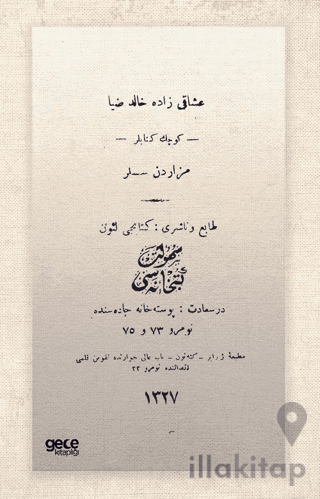 عشاقی زاده خالد ضیا
— کوچك کتابلر —
مزاردن سسلر
طابع و ناشری : کتابجی لئون
سهولت
کتبخانه سی
درسعادت : پوسته خانه جاده سنده
نومرو ٧٣ و ٧٥
مطبعهٔ
باب عالی جوارنده
نومرو ٢٢
١٣٢٧
gece
kitaplığı
illakitap